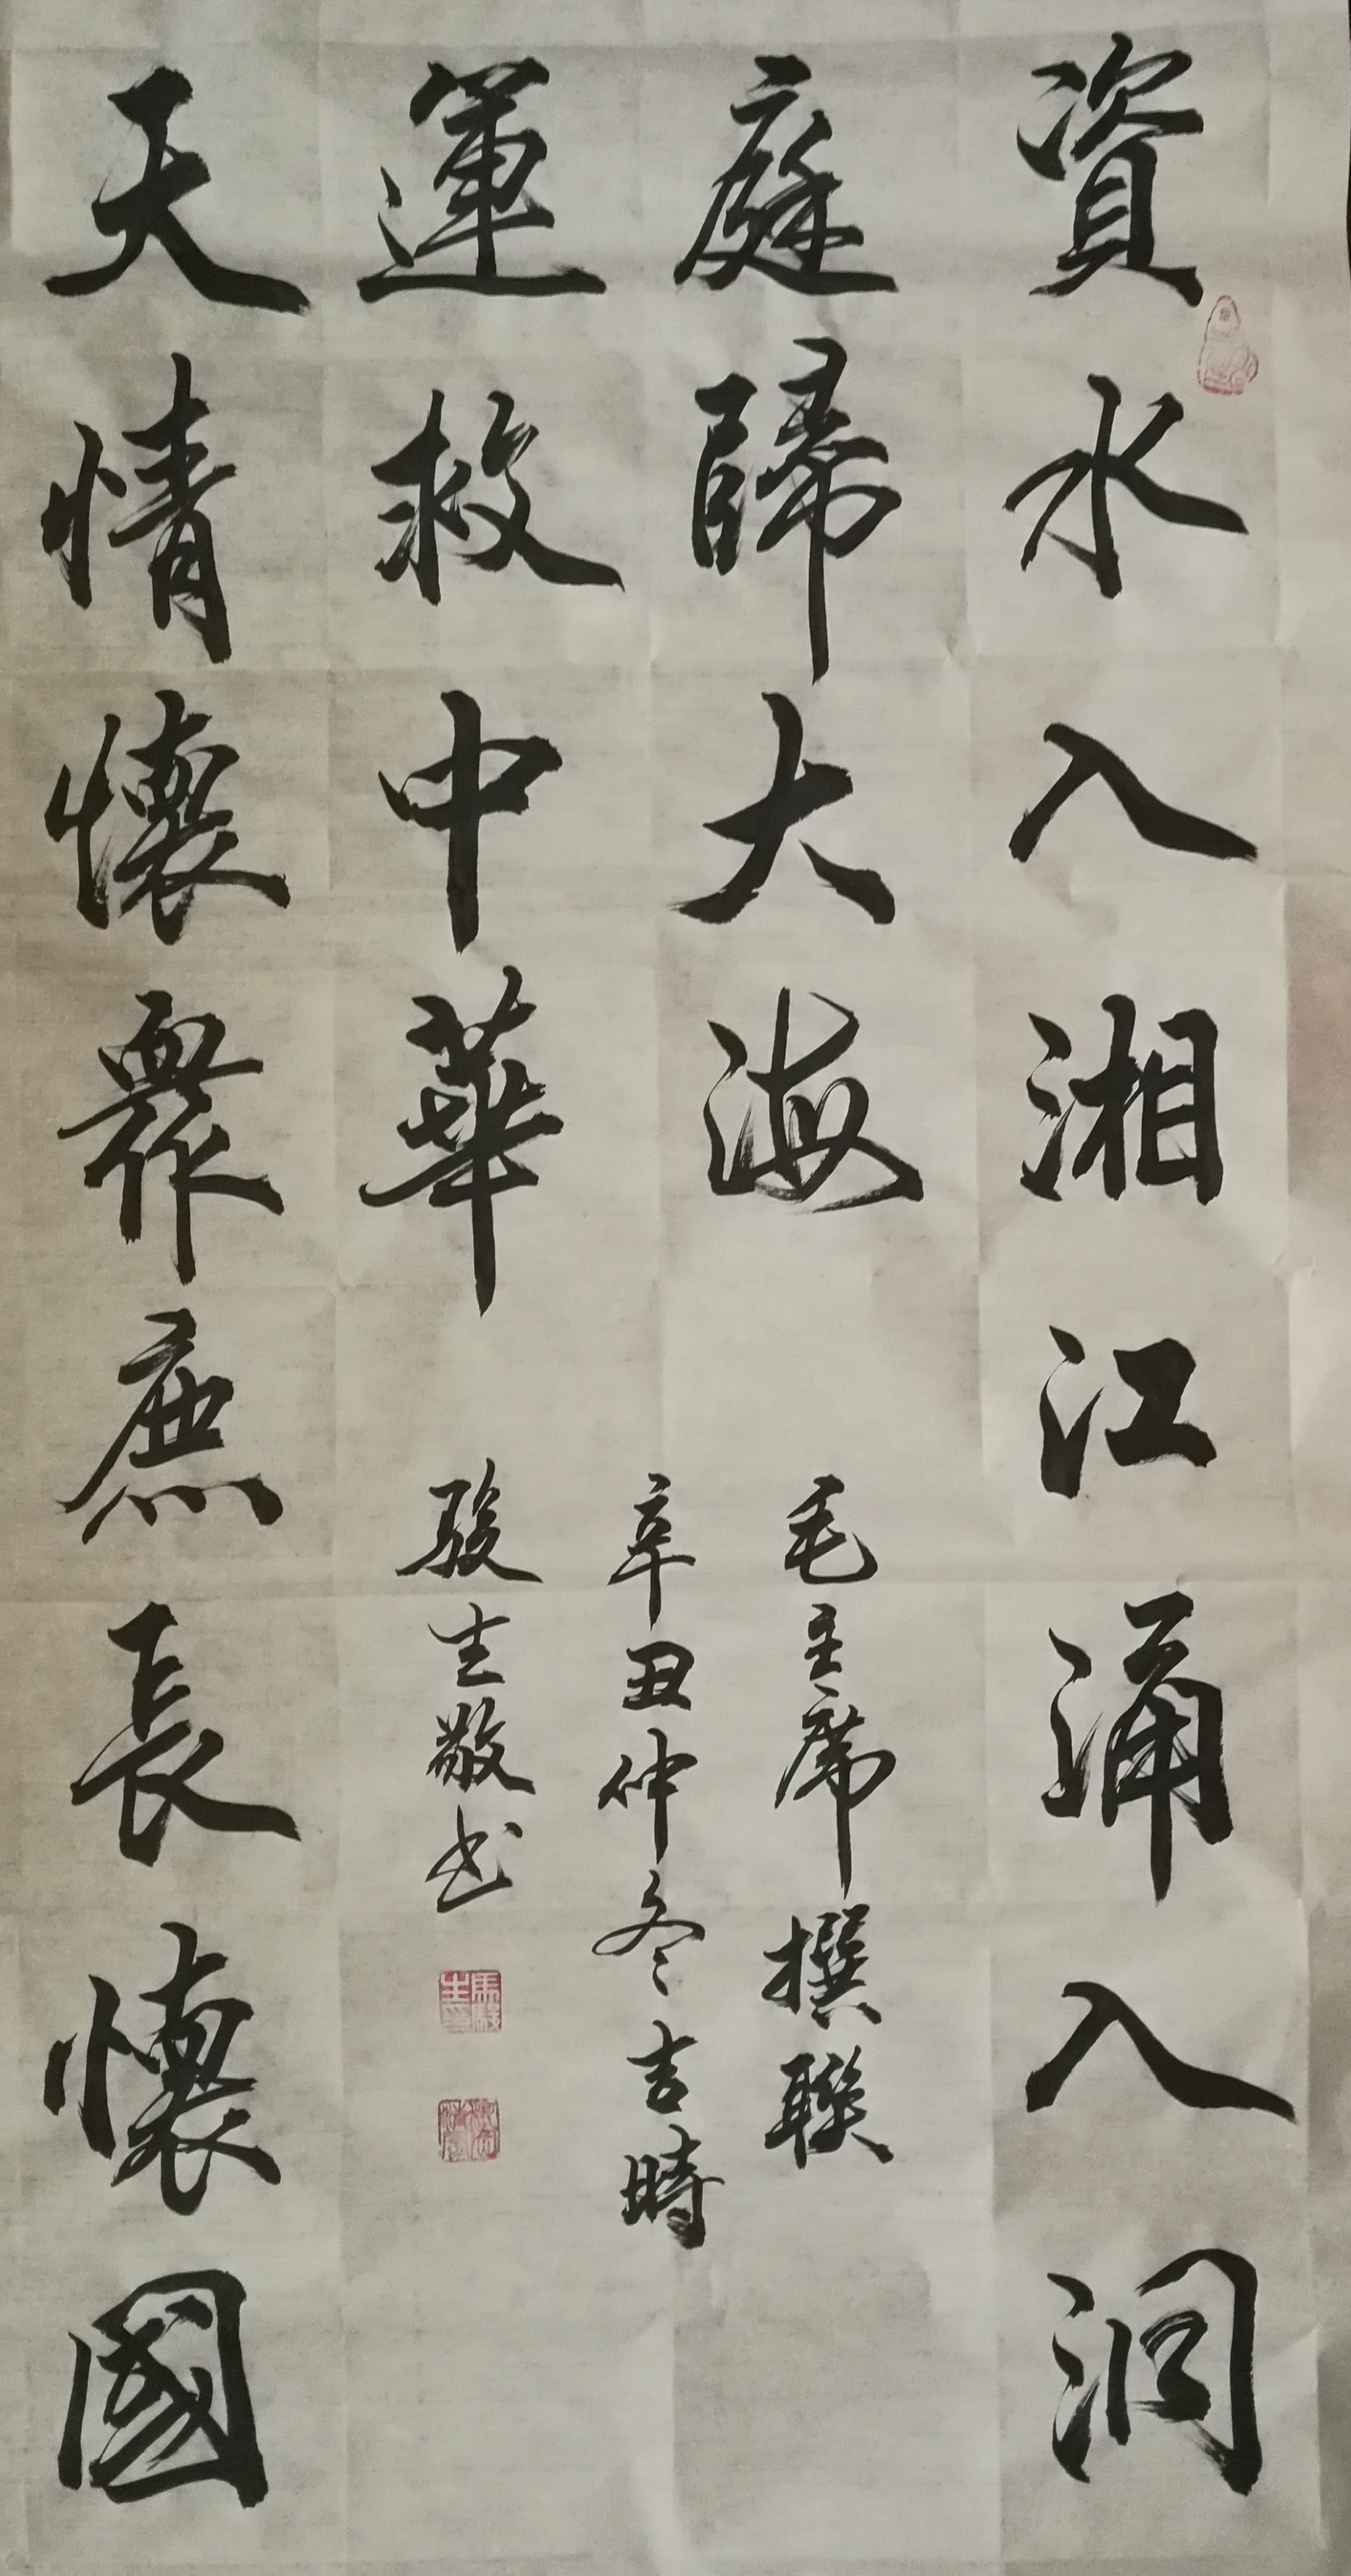 資水入湘江涌入洞
庭歸大海
天情懷衆庶長懷國
運救中華
毛主席撰聯
辛丑仲冬吉時
駿生敬书
馬駿生印